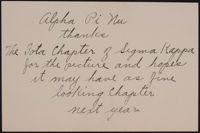 Alpha Pi Nu
thanks
The Iota Chapter of Sigma Kappa
for the picture and hopes
it may have as fine
looking Chapter
next year